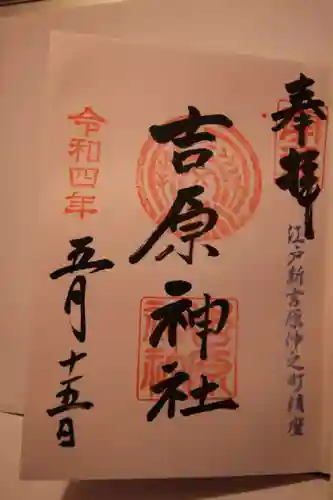 奉拝
江戸新吉原仲之町鎮座
吉原神社
令和四年
五月十五日